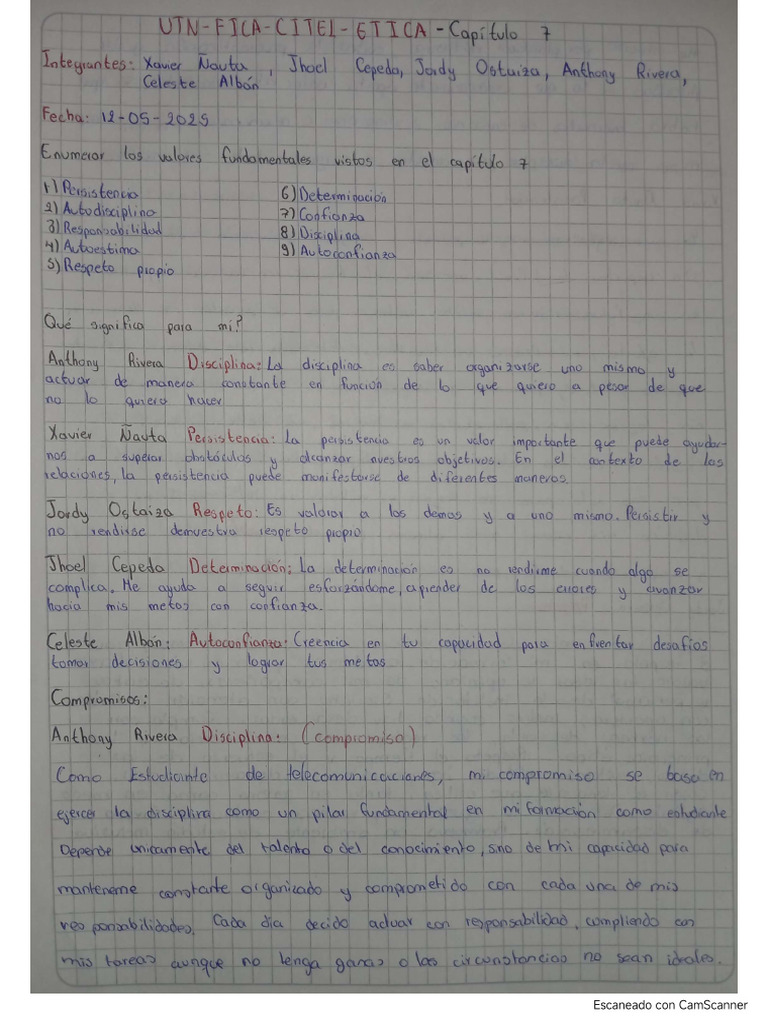 UTN-FICA-CITEL-ETICA-Capítulo 7
Integrantes: Xavier Ñauta, Jhoel Cepeda, Jordy Ostaiza, Anthony Rivera,
Celeste Albán
Fecha: 12-05-2025
Enumerar los valores fundamentales vistos en el capítulo 7
1) Persistencia
2) Autodisciplina
3) Responsabilidad
4) Autoestima
5) Respeto propio
6) Determinación
7) Confianza
8) Disciplina
9) Autoconfianza
Qué significa para mí?
Anthony Rivera Disciplina: La disciplina es saber organizarse uno mismo y
actuar de manera constante en función de lo que quiero a pesar de que
no lo quiera hacer
Xavier Ñauta Persistencia: La persistencia es un valor importante que puede ayudar-
nos a superar obstáculos y alcanzar nuestros objetivos. En el contexto de las
relaciones, la persistencia puede manifestarse de diferentes maneras.
Jordy Ostaiza Respeto: Es valorar a los demas y a uno mismo. Persistir y
no rendirse demuestra respeto propio
Jhoel Cepeda Determinación: La determinación es no rendirme cuando algo se
complica. Me ayuda a seguir esforzándome, aprender de los errores y avanzar
hacia mis metas con confianza.
Celeste Albán: Autoconfianza: Creencia en tu capacidad para enfrentar desafíos
tomar decisiones y lograr tus metas
Compromisos:
Anthony Rivera Disciplina: (compromiso)
Como Estudiante de telecomunicaciones, mi compromiso se basa en
ejercer la disciplina como un pilar fundamental en mi formación como estudiante
Depende unicamente del talento o del conocimiento, sino de mi capacidad para
manteneme constante organizado y comprometido con cada una de mis
responsabilidades. Cada día decido actuar con responsabilidad, cumpliendo con
mis tareas aunque no tenga ganas o las circunstancias no sean ideales.
Escaneado con CamScanner